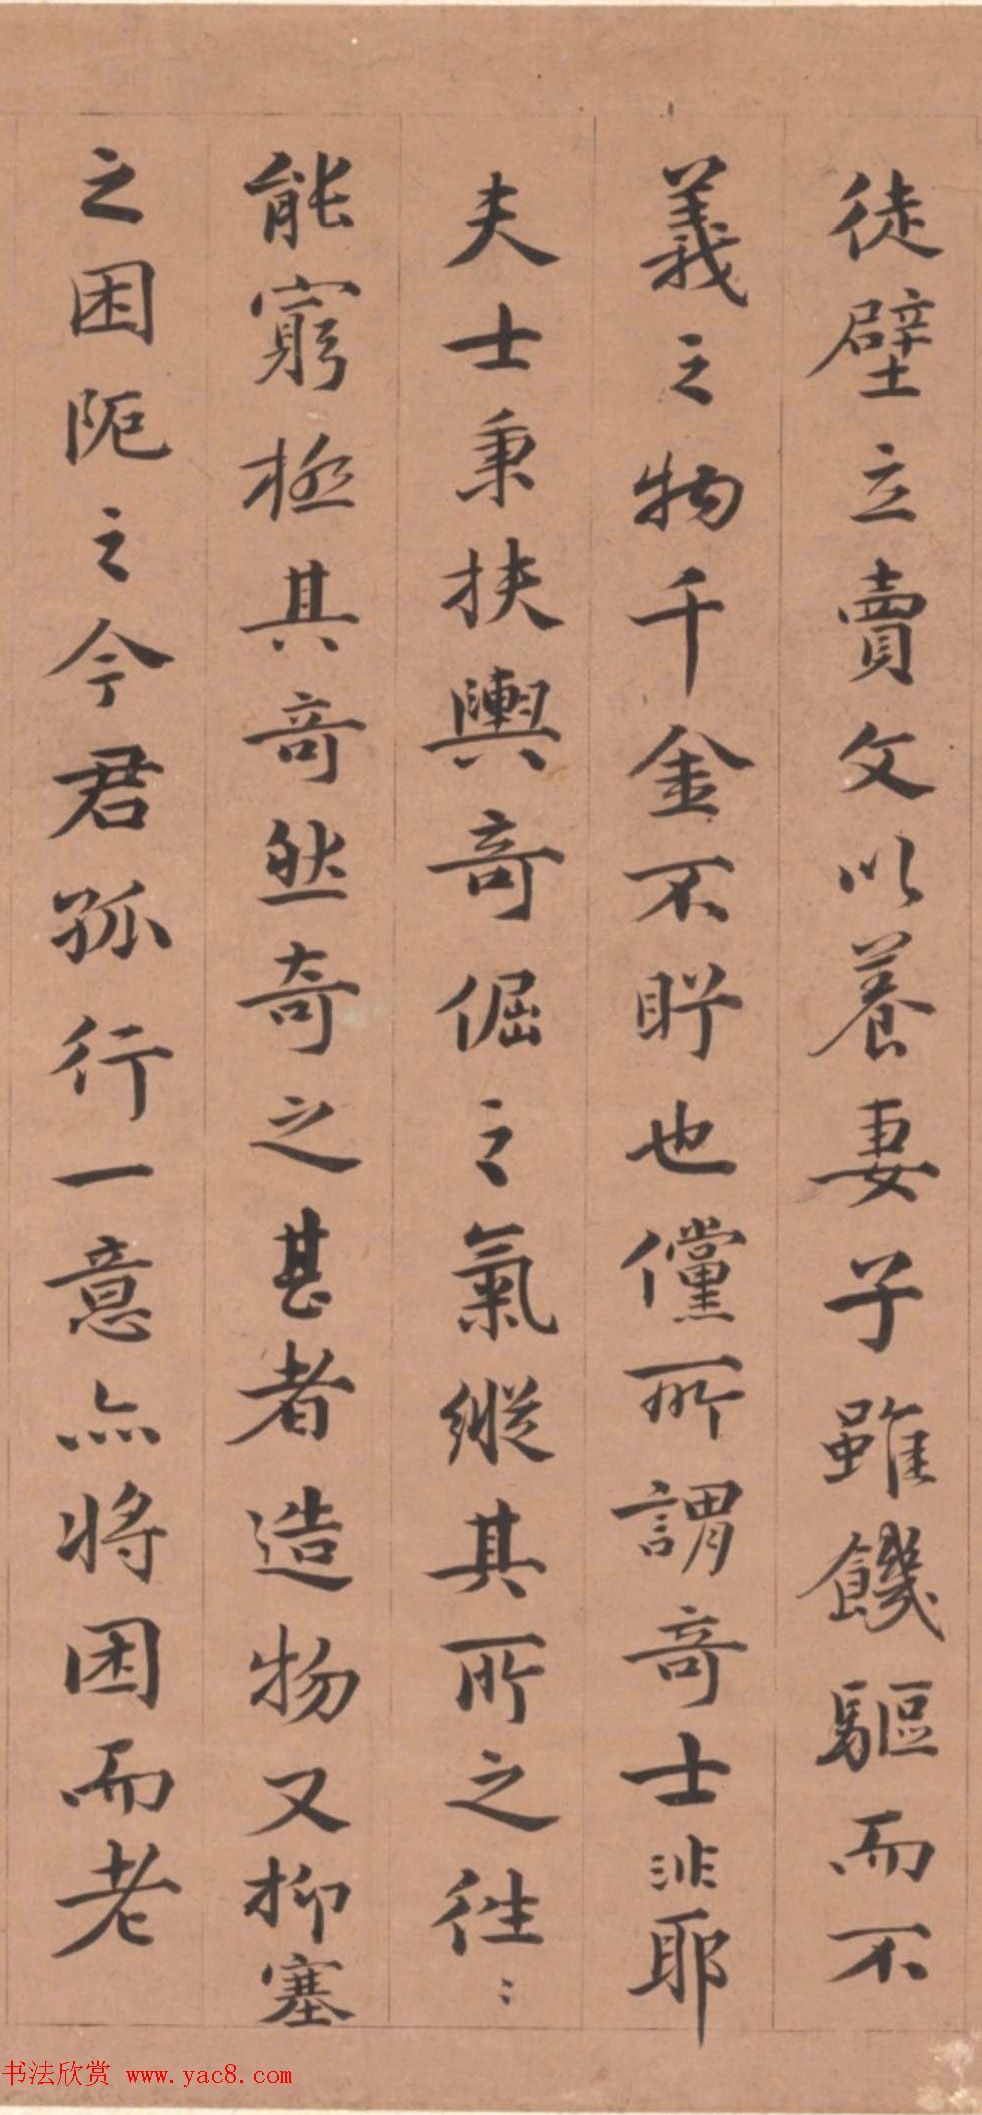 徒壁立賣文以養妻子雖饑驅而不
義之物千金不盻也儻所謂奇士非耶
夫士秉扶輿奇倔之氣縱其所之往〻
能窮極其奇然奇之甚者造物又抑塞
之困阨之今君孤行一意亦将困而老
书法欣赏 www.yac8.com